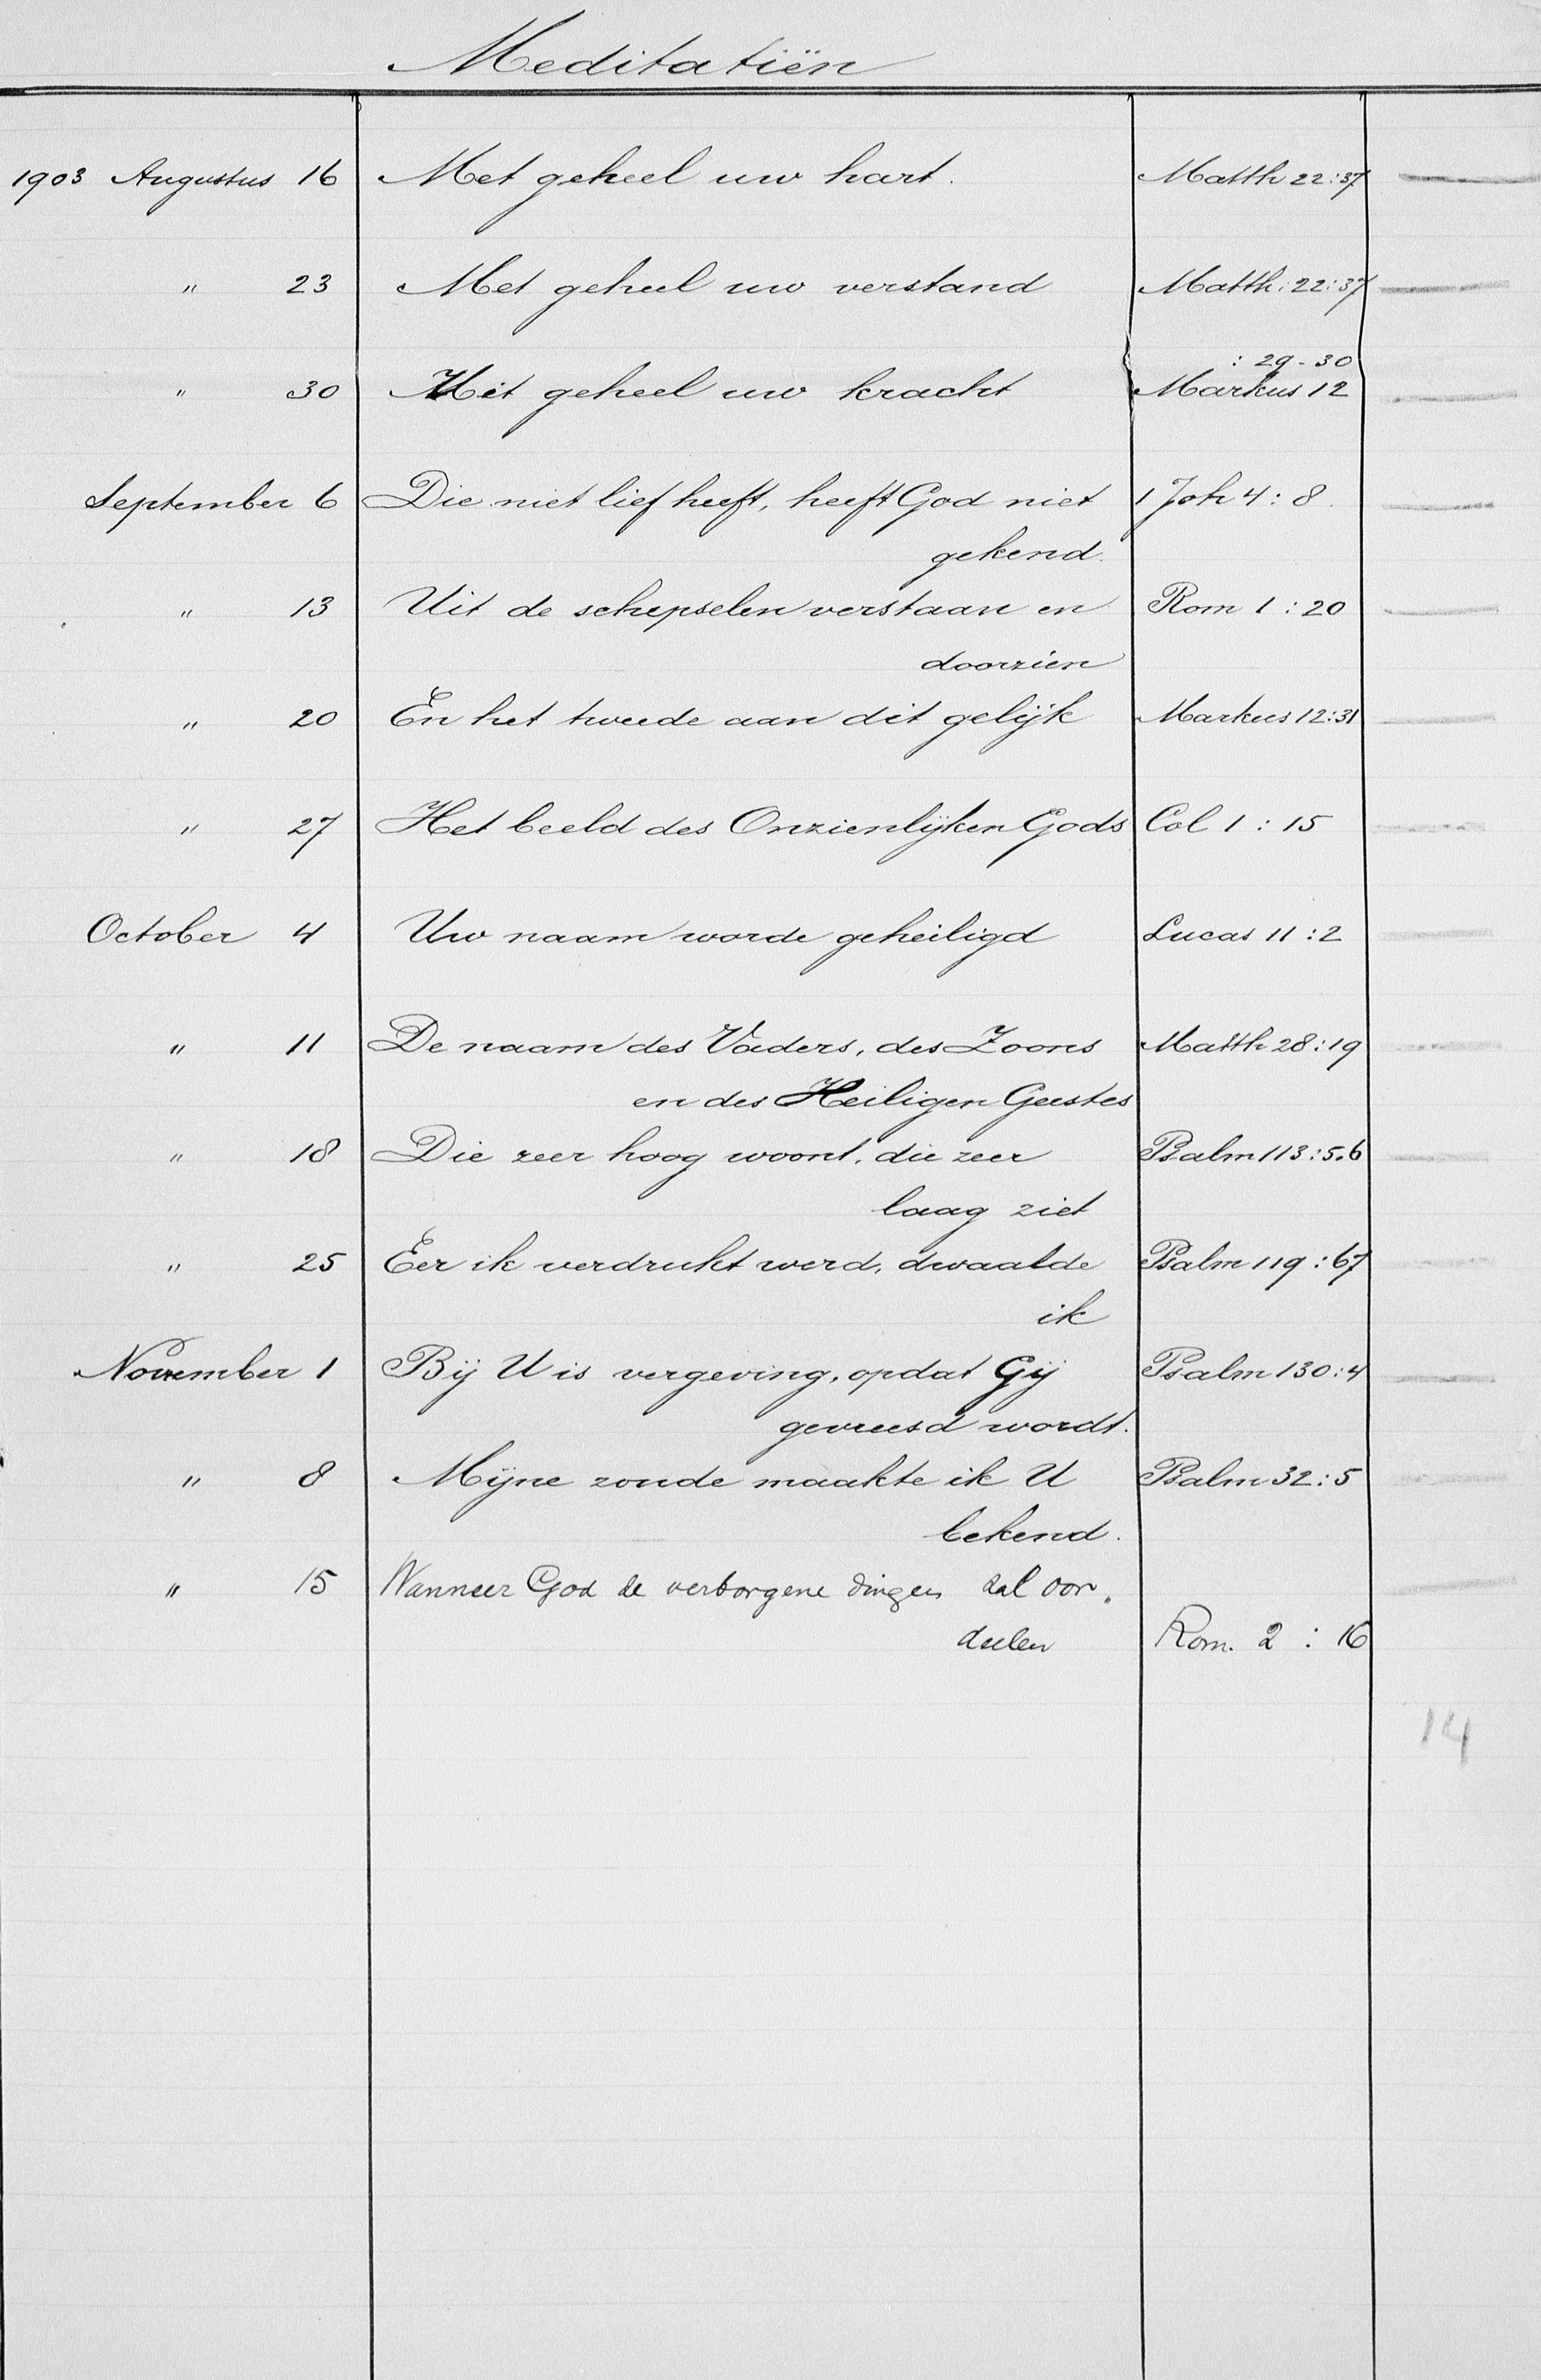 Meditatiën
1903 Augustus 16 Met geheel uw hart. Matth 22:37
" 23 Met geheel uw verstand Matth. 22:37
: 29-30
" 30 Met geheel uw kracht Markus 12
September 6 Die niet lief heeft, heeft God niet 1 Joh 4:8.
gekend.
" 13 Uit de schepselen verstaan en Rom 1:20
doorzien
" 20 En het tweede aan dit gelijk Markus 12:31
" 27 Het beeld des Onzienlijken Gods Col 1:15
October 4 Uw naam worde geheiligd Lucas 11:2
" 11 De naam des Vaders, des Zoons Matth 28:19
en des Heiligen Geestes
" 18 Die zeer hoog woont, die zeer Psalm 113:5.6
laag ziet
" 25 Eer ik verdrukt werd, dwaalde Psalm 119:67
ik
November 1 Bij U is vergeving, opdat Gij Psalm 130:4
gevreesd wordt.
" 8 Mijne zonde maakte ik U Psalm 32:5
bekend.
" 15 Wanneer God de verborgene dingen zal oor„
deelen Rom. 2:16
14